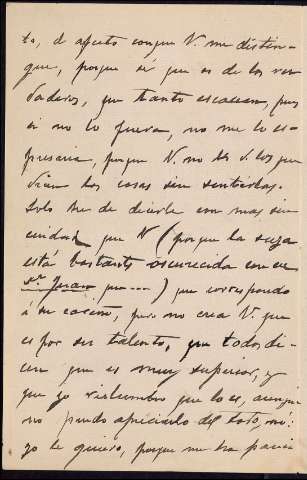 to, el afecto conque V. me distin-
gue, porque sé que es de los ver-
daderos, que tanto escasean, pues
si no lo fuera, no me lo ex-
presaria, porque V. no es de los que
dicen las cosas sin sentirlas.
Solo he de decirle con mas sin-
ceridad que V (porque la suya
está bastante oscurecida con ese
Sn. Juan que ....) que correspondo
á su cariño, pero no crea V. que
es por su talento, que todos di-
cen que es muy superior, y
que yo vislumbro que lo es, aunque
no puedo apreciarlo del todo, nó:
yo le quiero, porque me ha pareci